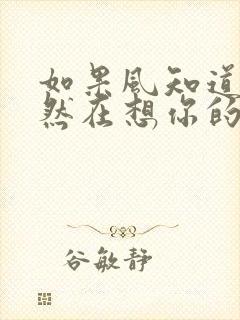 如果风知道
然在想你的
谷敏静